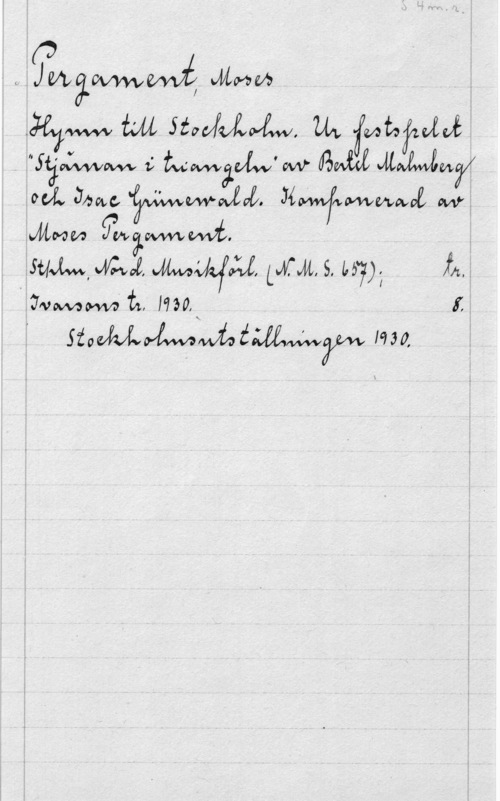 S 4 m.r.
Pergament, Moses
Hymn till Stockholm. Ur festspelet
"Stjärnan i triangeln" av Bertil Malmberg
och Isac Grünewald. Komponerad av
Moses Pergament.
Sthlm, Nord. Musikförl. (N. M. S. 657); tr.
Ivarsons tr. 1930. 8.
Stockholmsutställningen 1930.